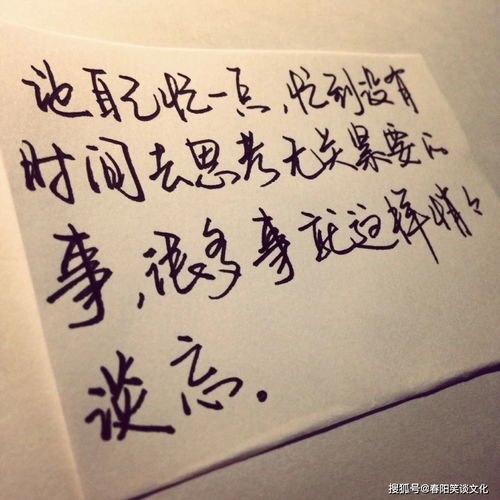 让自己忙一点,忙到没有
时间去思考无关紧要的
事,很多事就这样悄々
谈忘。
搜狐号@春阳笑谈文化